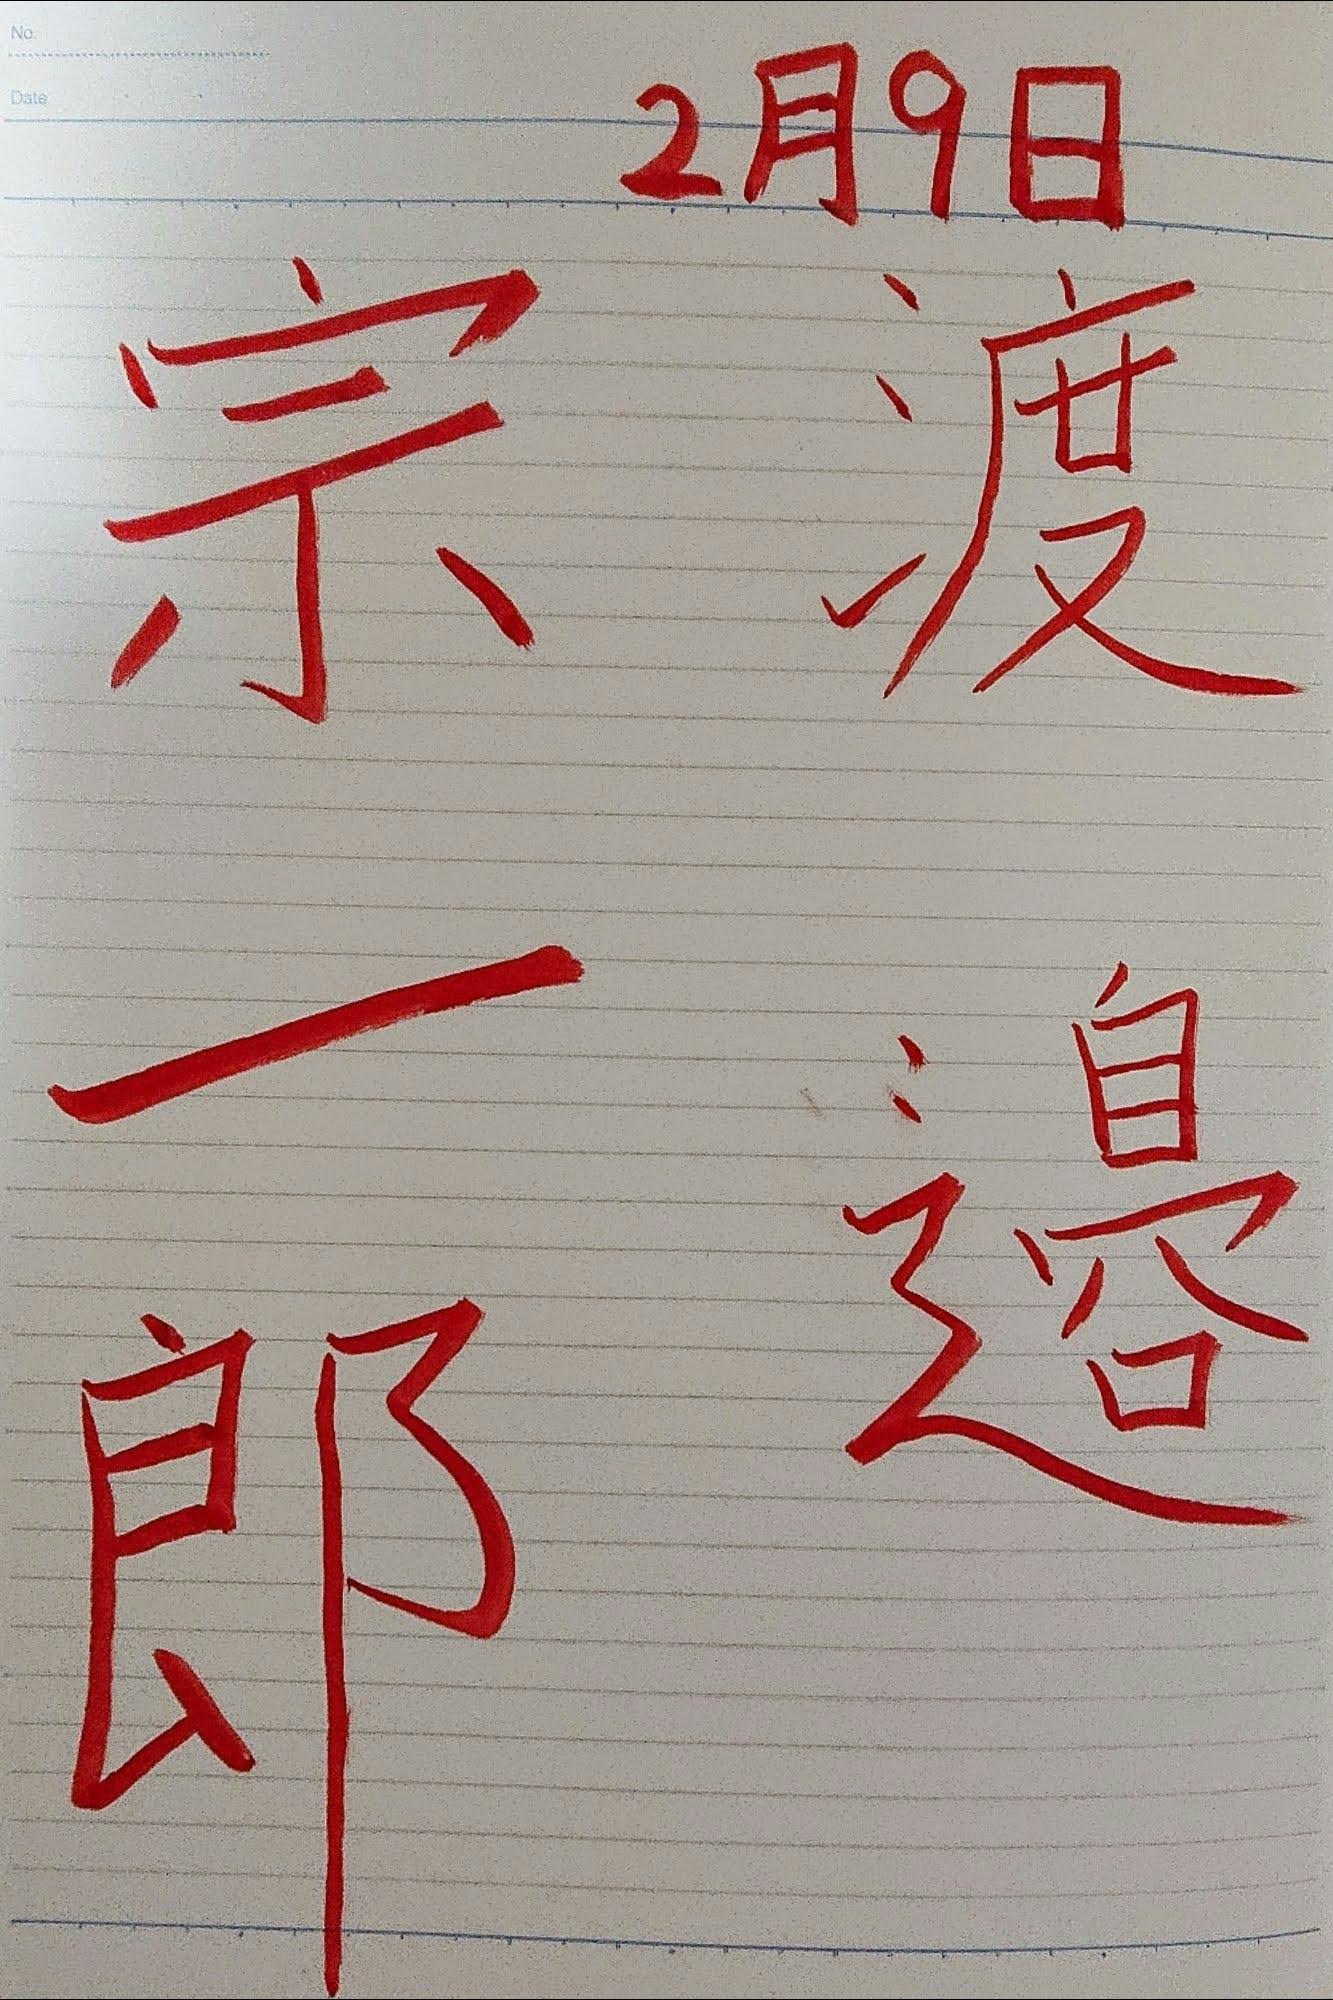 No.
Date
2月9日
渡邉
宗一郎